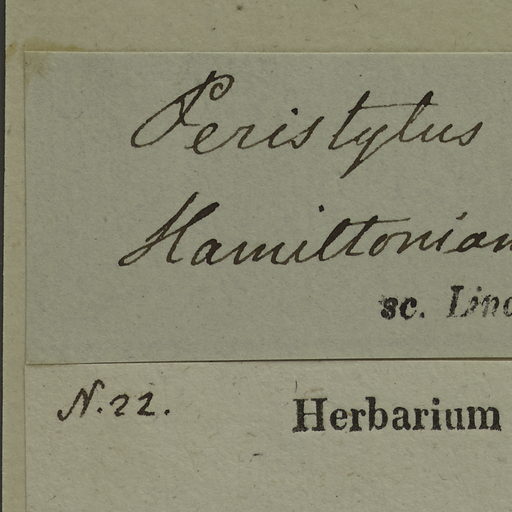 Peristylus
Hamiltonian
sc. Lind
N. 22.
Herbarium